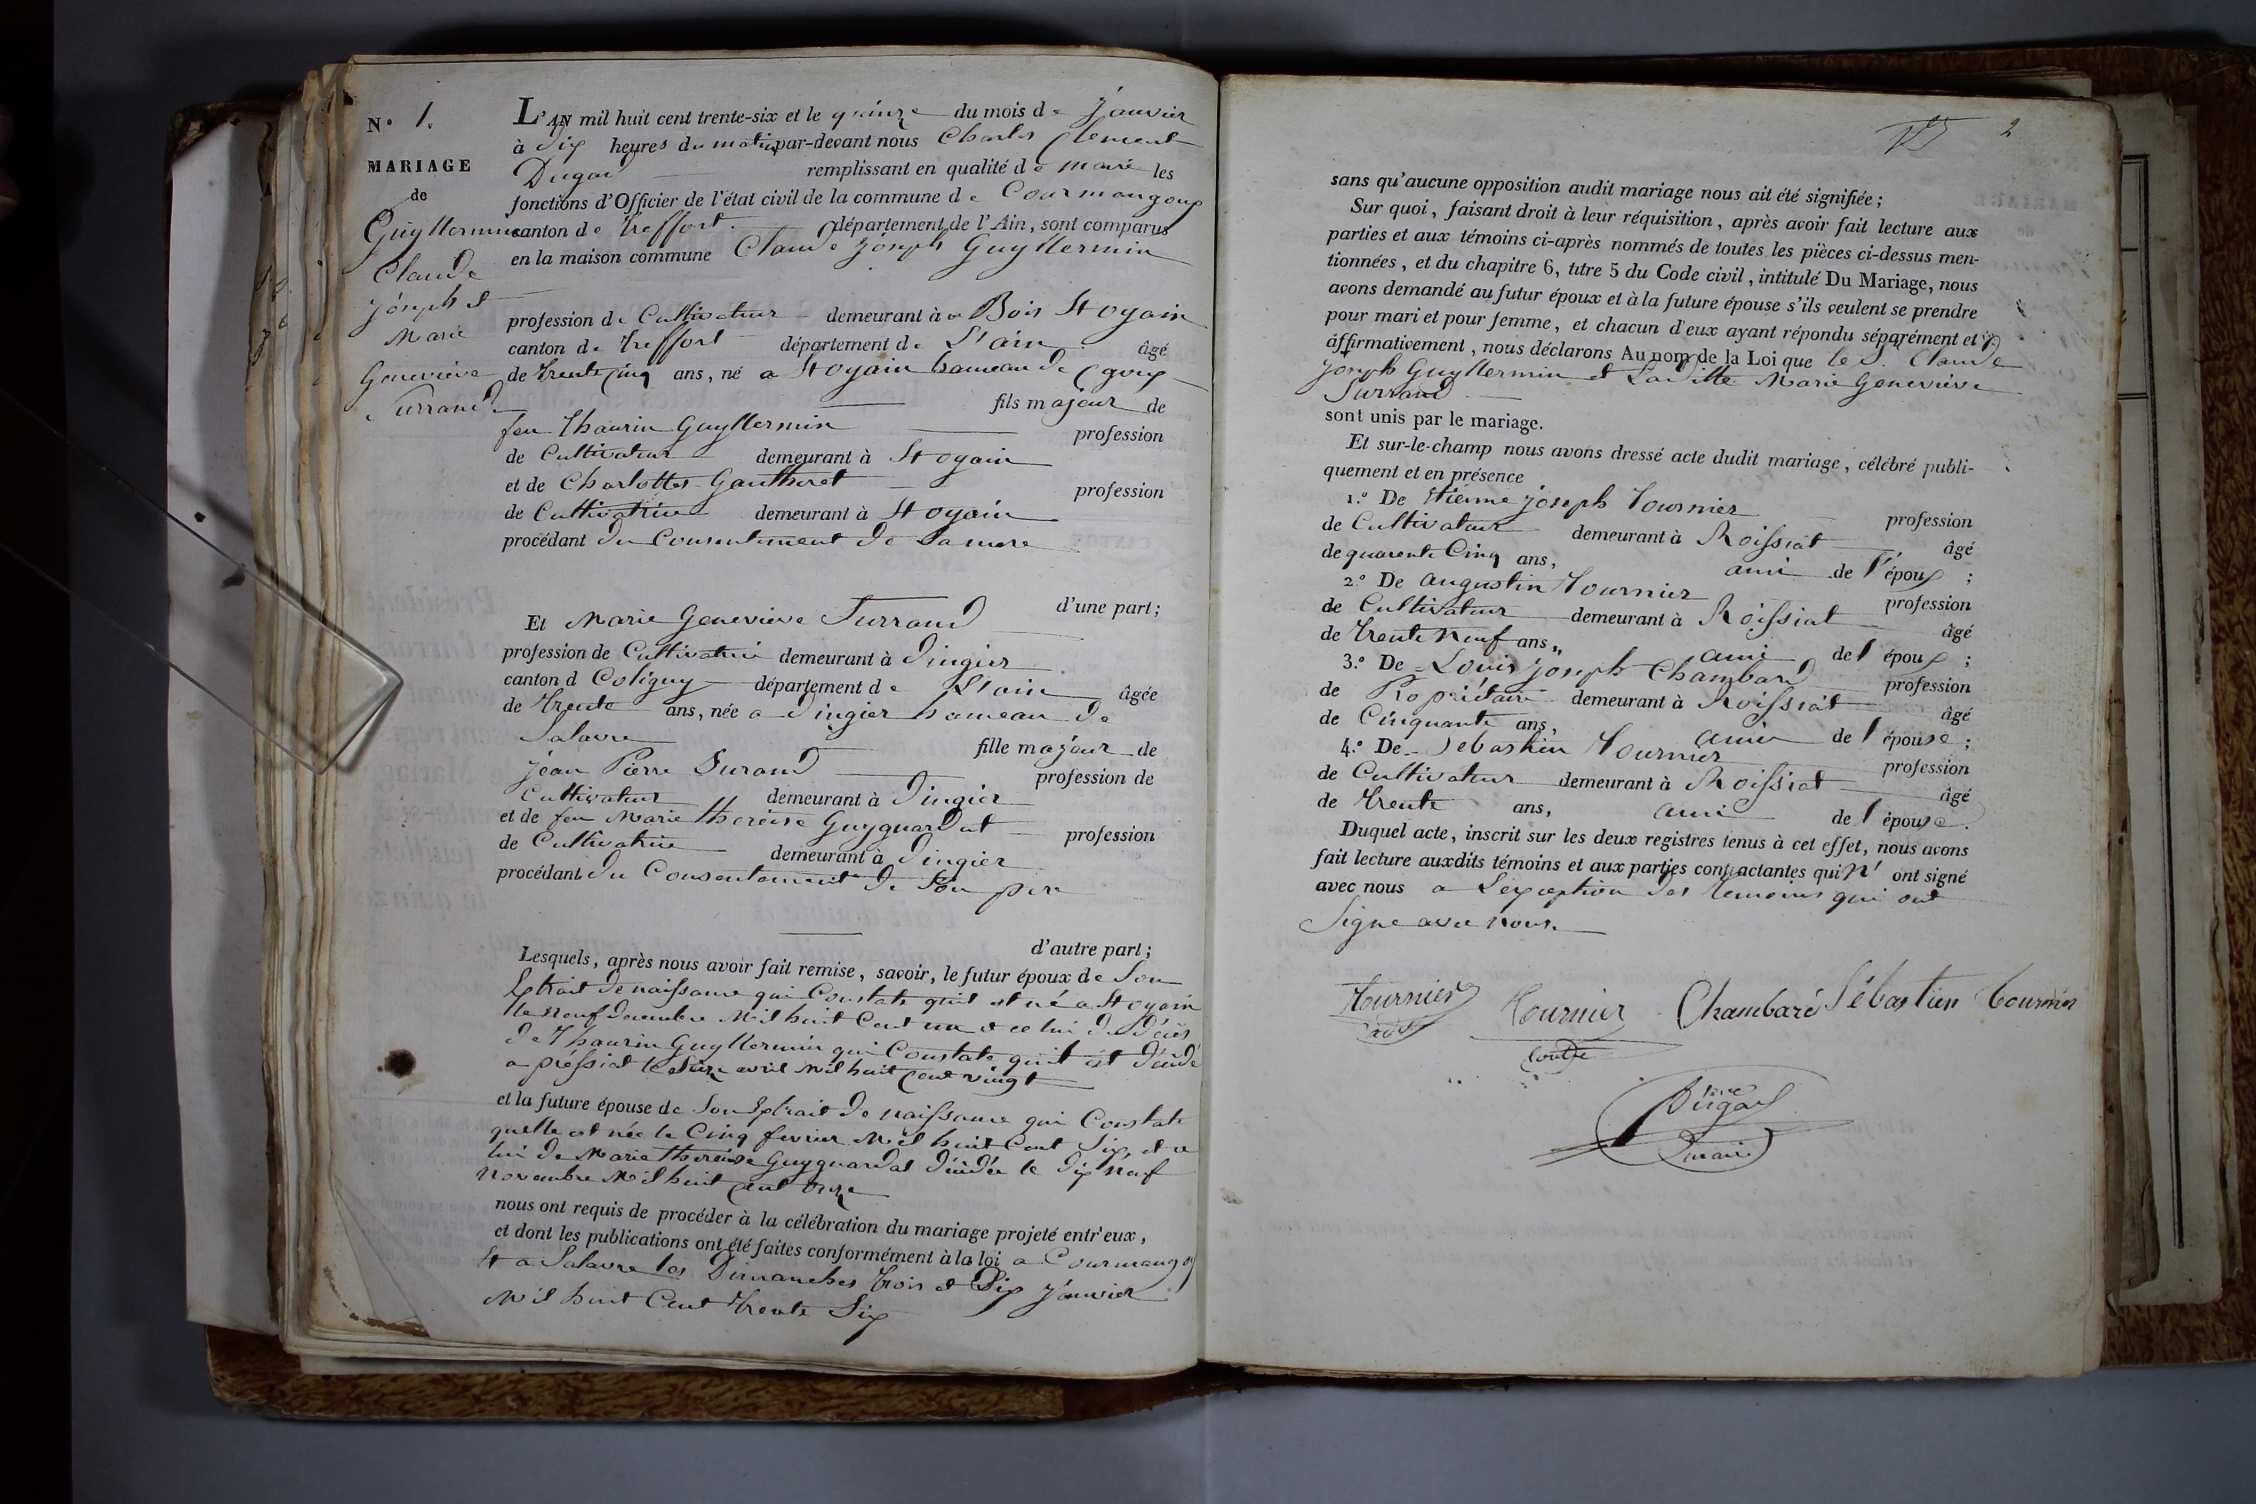 N° 1.
MARIAGE
de
Guyllermin
Claude
joseph et
Marie
Geneviève
Surrand
L'AN mil huit cent trente-six et le quinze du mois de Janvier
à dix heures du matin par-devant nous Charles Clement
Dugad remplissant en qualité de maire les
fonctions d'Officier de l'état civil de la commune de Courmangoux
canton de Treffort département de l'Ain, sont comparus
en la maison commune Claude joseph Guyllermin
profession de Cultivateur demeurant à Bois St oyain
canton de Treffort département de L'ain âgé
de trente cinq ans, né a St oyain hameau de
fils majeur de
feu Thaurin Guyllermin profession
de Cultivateur demeurant à St oyain
et de Charlotte Gautheret profession
de Cultivatrice demeurant à St oyain
procédant du Consentement de Sa mere
d'une part;
Et Marie Geneviève Surrand
profession de Cultivatrice demeurant à Dingier
canton d Coligny département de L'ain âgée
de trente ans, née a Dingier hameau de
Salavre fille majeur de
jean Pierre Surand profession de
Cultivateur demeurant à Dingier
et de feu Marie thereise Guyguardat profession
de Cultivatrice demeurant à Dingier
procédant du Consentement de Son pere
d'autre part;
Lesquels, après nous avoir fait remise, savoir, le futur époux de Son
Extrait de naissance qui Constate quil est né a St oyain
le neuf decembre Mil huit Cent un et ce lui de décès
de Thaurin Guyllermin qui Constate quil est décédé
a préssiat le Seize avril Mil huit Cent vingt
et la future épouse de Son Extrait de naissance qui Constate
quelle est née le Cinq fevrier Mil huit Cent Six, et ce
lui de Marie thereise Guyguardat décédée le dix neuf
novembre Mil huit Cent onze
nous ont requis de procéder à la célébration du mariage projeté entr'eux,
et dont les publications ont été faites conformément à la loi a Courmangoux
Et a Salavre les Dimanches trois et Dix Janvier
Mil huit Cent trente Six
2
sans qu'aucune opposition audit mariage nous ait été signifiée;
Sur quoi, faisant droit à leur réquisition, après avoir fait lecture aux
parties et aux témoins ci-après nommés de toutes les pièces ci-dessus men-
tionnées, et du chapitre 6, titre 5 du Code civil, intitulé Du Mariage, nous
avons demandé au futur époux et à la future épouse s'ils veulent se prendre
pour mari et pour femme, et chacun d'eux ayant répondu séparément et
affirmativement, nous déclarons Au nom de la Loi que le S. Claude
joseph Guyllermin et Ladite Marie Geneviève
Surrand
sont unis par le mariage.
Et sur-le-champ nous avons dressé acte dudit mariage, célébré publi-
quement et en présence
1.° De Etienne joseph Tournier profession
de Cultivateur demeurant à Roissiat âgé
de quarente Cinq ans, ami de l'époux ;
2.° De augustin Tournier profession
de Cultivateur demeurant à Roissiat âgé
de trente neuf ans, ami de l époux ;
3.° De Louis joseph Chambard profession
de Propriétaire demeurant à Roissiat âgé
de Cinquante ans, ami de l épouse ;
4.° De Sebastien Tournier profession
de Cultivateur demeurant à Roissiat âgé
de trente ans, ami de l épouse.
Duquel acte, inscrit sur les deux registres tenus à cet effet, nous avons
fait lecture auxdits témoins et aux parties contractantes qui n' ont signé
avec nous a L'exception des temoins qui ont
Signé avec nous.
Tournier Tournier Chambard Sébastien tournier
Dugad
maire